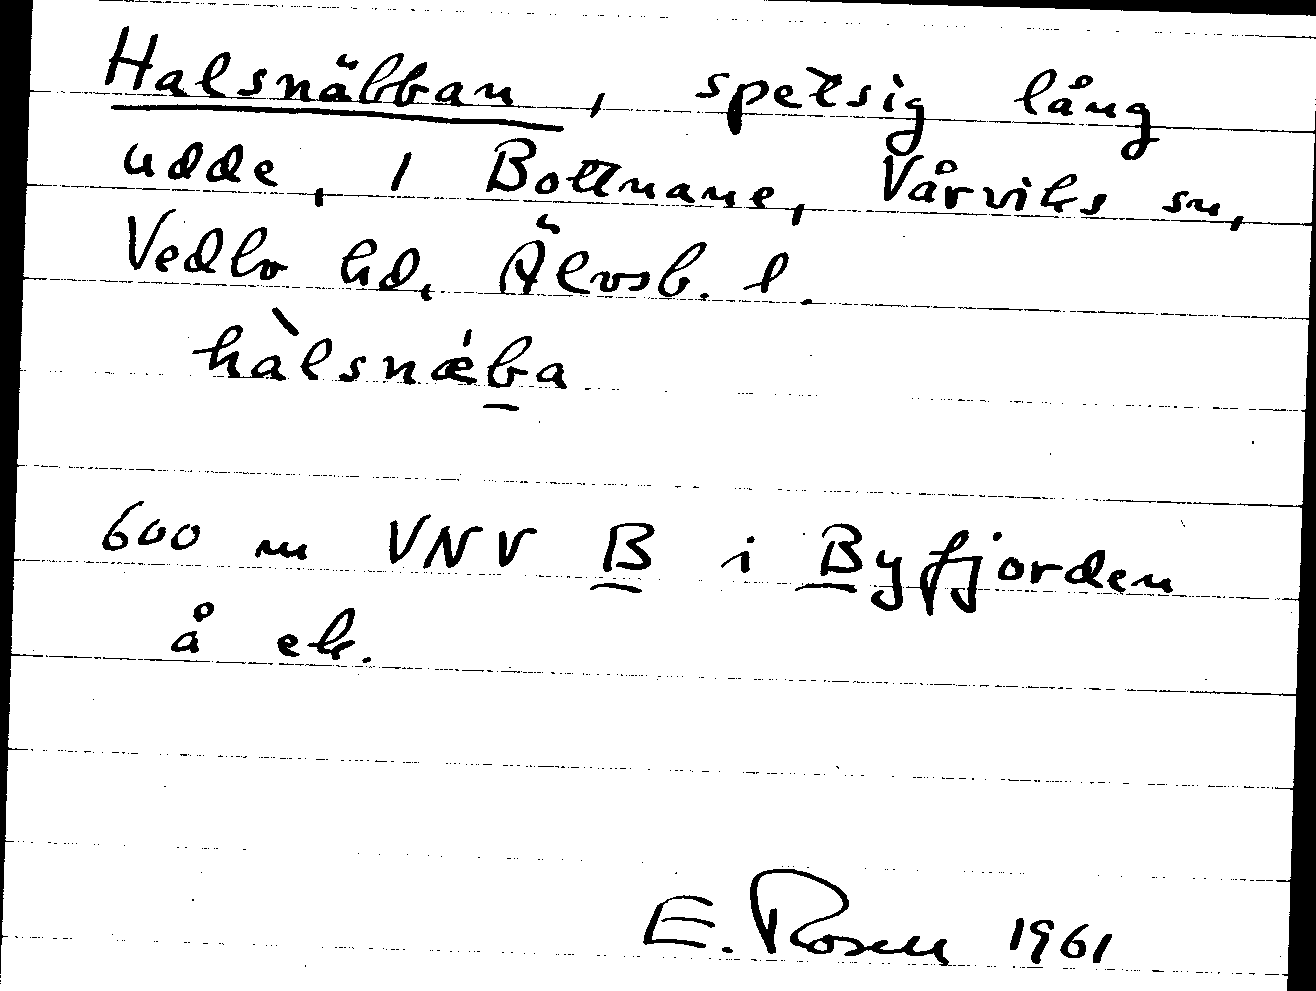 Halsnäbban, spetsig lång
udde, 1 Bottnane, Vårviks sn,
Vedbo hd, Älvsb. l.
hàlsnǽba
600 m VNV B i Byfjorden
å ek.
E. Rosen 1961